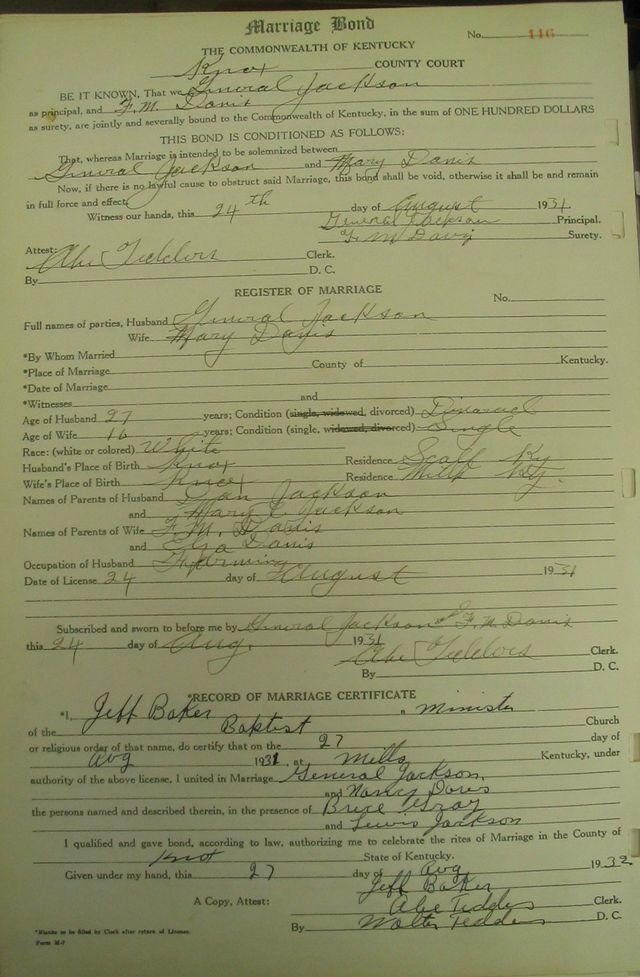 Marriage Bond
No. 446
THE COMMONWEALTH OF KENTUCKY
Knox COUNTY COURT
BE IT KNOWN, That we General Jackson
as principal, and F. M. Davis
as surety, are jointly and severally bound to the Commonwealth of Kentucky, in the sum of ONE HUNDRED DOLLARS
THIS BOND IS CONDITIONED AS FOLLOWS:
That, whereas Marriage is intended to be solemnized between
General Jackson and Mary Davis
Now, if there is no lawful cause to obstruct said Marriage, this bond shall be void, otherwise it shall be and remain
in full force and effect.
Witness our hands, this 24th day of August 1931
General Jackson Principal.
F. M Davis Surety.
Attest:
Abe Tedders Clerk.
By D. C.
REGISTER OF MARRIAGE
No.
Full names of parties, Husband General Jackson
Wife Mary Davis
*By Whom Married
*Place of Marriage County of Kentucky.
*Date of Marriage
*Witnesses and
Age of Husband 27 years; Condition (single, widowed, divorced) Divorced
Age of Wife 16 years; Condition (single, widowed, divorced) Single
Race: (white or colored) White
Husband's Place of Birth Knox Residence Scalf Ky
Wife's Place of Birth Knox Residence Mills Ky.
Names of Parents of Husband Jackson
and Mary Jackson
Names of Parents of Wife F. M. Davis
and Davis
Occupation of Husband Farming
Date of License 24 day of August 1931
Subscribed and sworn to before me by General Jackson and F. M. Davis
this 24 day of Aug. 1931
Abe Tedders Clerk.
By D. C.
*RECORD OF MARRIAGE CERTIFICATE
*I, Jeff Baker, a minister
of the Baptist Church
or religious order of that name, do certify that on the 27 day of
Aug 1931, at Mills Kentucky, under
authority of the above license, I united in Marriage General Jackson,
and Nancy Doves
the persons named and described therein, in the presence of Brice Gray
and Lewis Jackson
I qualified and gave bond, according to law, authorizing me to celebrate the rites of Marriage in the County of
Knot State of Kentucky.
Given under my hand, this 27 day of Aug 1932
Jeff Baker
A Copy, Attest: Abe Tedders Clerk.
By Walter Tedders D. C.
*Blanks to be filled by Clerk after return of License.
Form M-7